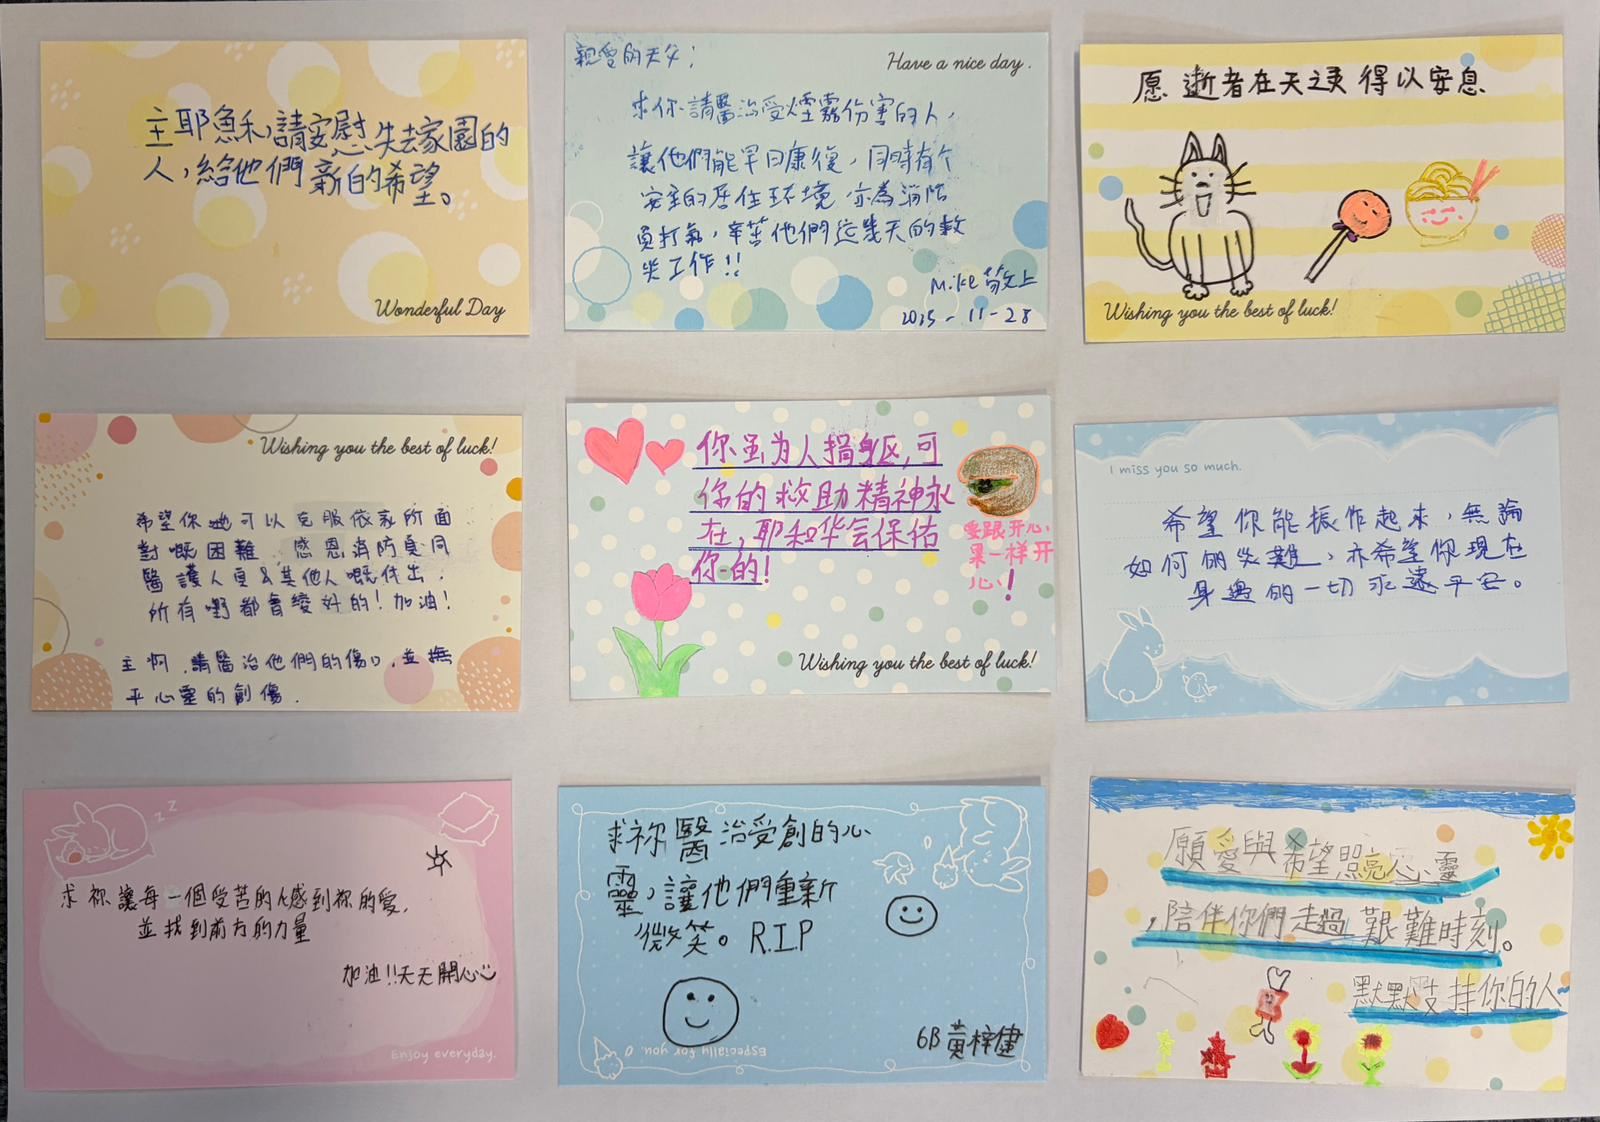 主耶穌,請安慰失去家園的
人,給他們新的希望。
Wonderful Day
親愛的天父:
Have a nice day.
求你請醫治受煙霧份害的人,
讓他們能早日康復,同時有个
安全的居住环境 亦為消防
員打氣,辛苦他們這幾天的救
災工作!!
Mike 敬上
2025-11-28
愿逝者在天之灵得以安息
Wishing you the best of luck!
Wishing you the best of luck!
希望你哋可以克服依家所面
對嘅困難.感恩消防員同
醫護人員&其他人嘅付出,
所有嘢都會變好的!加油!
主啊,請醫治他們的傷口,並撫
平心靈的創傷.
你虽为人捐身区,可
你的救助精神永
在,耶和华会保佑
你的!
要跟开心
果一样开
心!
Wishing you the best of luck!
I miss you so much.
希望你能振作起來,無論
如何的災難,亦希望你現在
身邊的一切永遠平安。
z z
求祢讓每一個受苦的人感到祢的愛,
並找到前方的力量
加油!!天天開心
Enjoy everyday.
求祢醫治受創的心
靈,讓他們重新
微笑。R.I.P
6B 黃梓健
Especially for you.
願愛與希望照亮心靈
,陪伴你們走過艱難時刻。
默默支持你的人